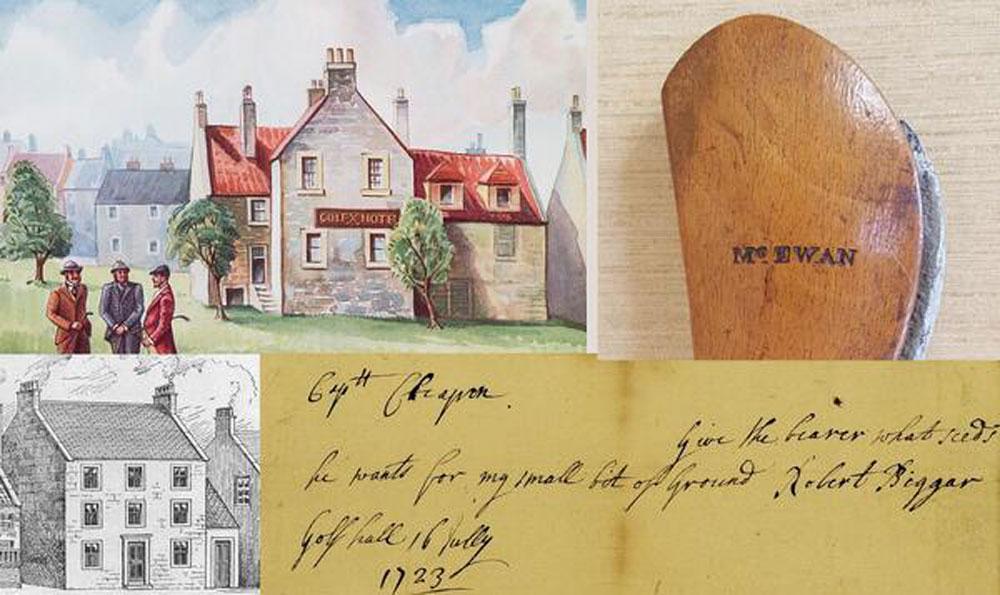 GOLFX HOTE
Mc EWAN
Captt Cheapon.
Give the bearer what seeds
he wants for my small bit of Ground Robert Biggar
Golf hall 16 July
1723